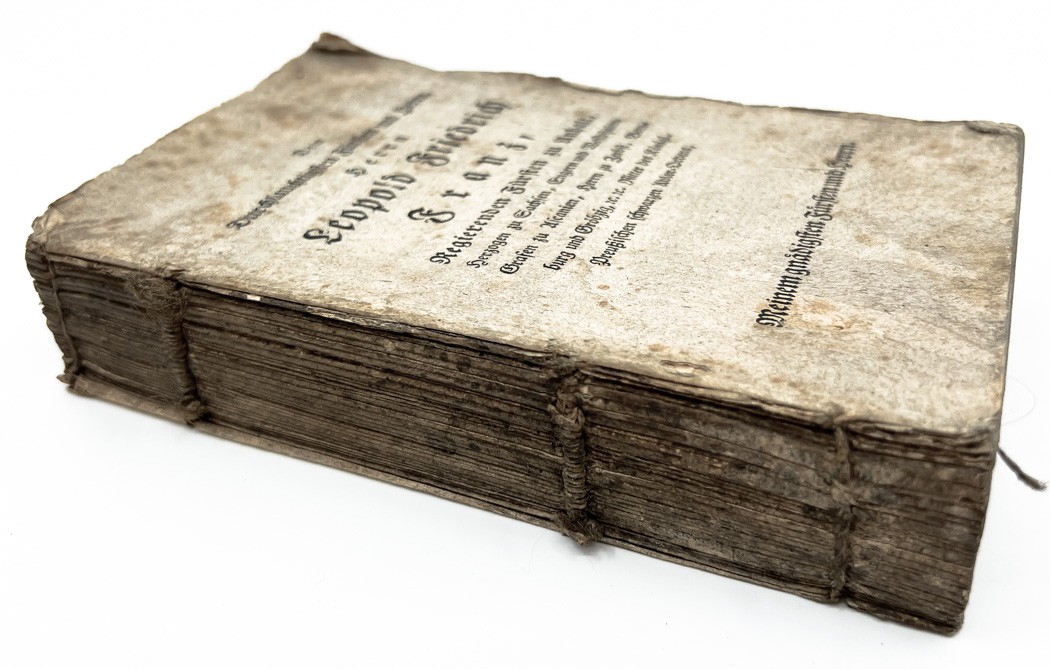 Dem
Durchlauchtigsten Fürsten und Herrn
Herrn
Leopold Friedrich
Franz,
Regierenden Fürsten zu Anhalt
Herzogen zu Sachsen, Engern und Westphalen
Grafen zu Askanien, Herrn zu Zerbst, Bern-
burg und Gröbzig, ꝛc. ꝛc. Ritter des Königl.
Preußischen schwarzen Adler-Ordens,
Meinem gnädigsten Fürsten und Herrn.